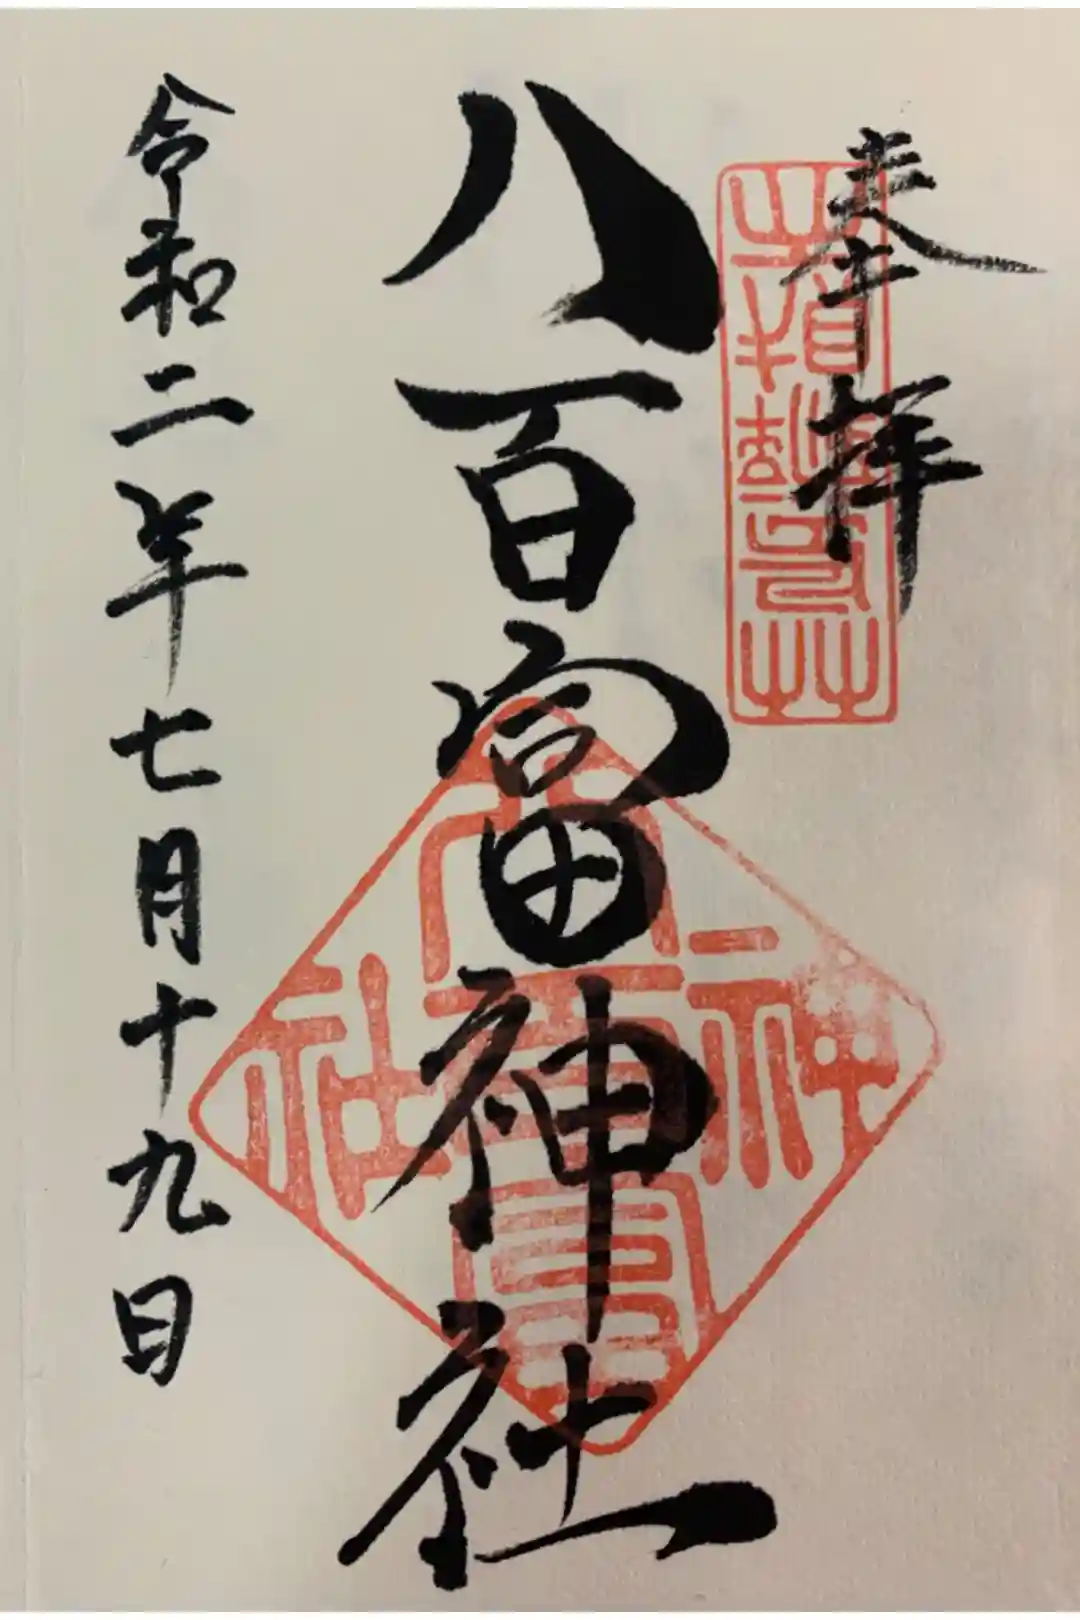 奉拝
八百富神社
令和二年七月十九日
八百富神社